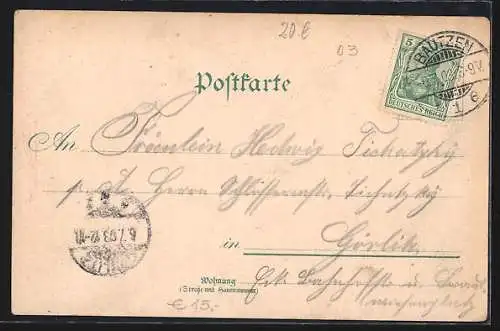 20 €
03
BAUTZEN
5
DEUTSCHES REICH
Postkarte
An Fräulein Hedwig Tichatzky
p. A. Herrn Schlossermstr. Tichatzky
6.7.03.12-
in Görlitz
Wohnung
(Strasse und Hausnummer)
Eck Bahnhofstr. u.
€ 15,-